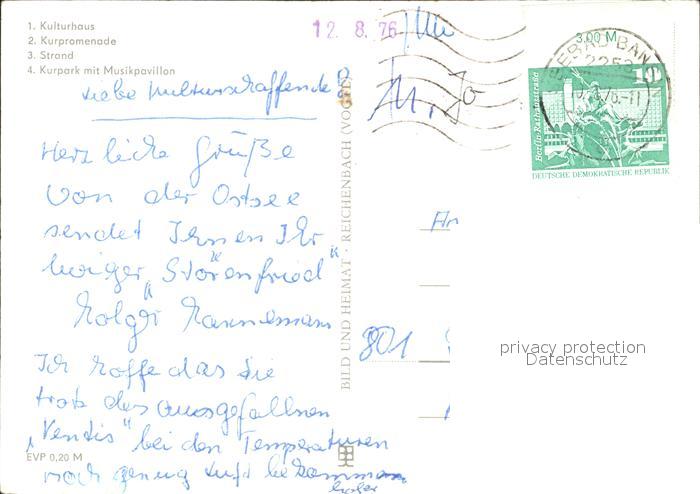 1. Kulturhaus
2. Kurpromenade
3. Strand
4. Kurpark mit Musikpavillon
12. 8. 76
Liebe Kulturschaffende!
Herzliche Grüße
von der Ostsee
sendet Ihnen Ihr
ewiger "Störenfried"
Holger Hannemann
Ich hoffe das Sie
trotz des ausgefallnen
"Ventis" bei den Temperaturen
noch genug Luft bekommen
EVP 0,20 M
BILD UND HEIMAT · REICHENBACH (VOGTL
3,00 M
SEEBAD BAN
2253
Berlin, Rathausstraße
DEUTSCHE DEMOKRATISCHE REPUBLIK
An
801
privacy protection
Datenschutz